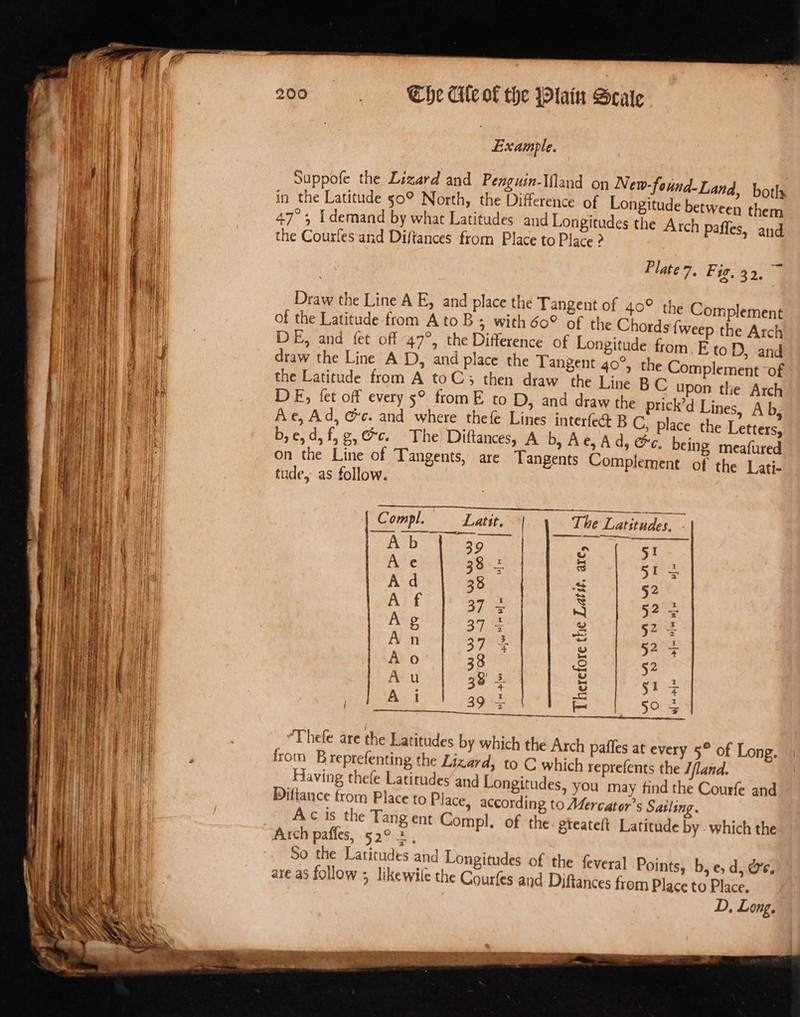 200 The Use of the Plain Scale
Example.
Suppoſe the Lizard and Penguin-Iſland on New-found-Land, both
in the Latitude 50° North, the Difference of Longitude between them
47°; I demand by what Latitudes and Longitudes the Arch paſſes, and
the Courſes and Diſtances from Place to Place?
Plate 7. Fig. 32.
Draw the Line A E, and place the Tangent of 40° the Complement
of the Latitude from A to B; with 60° of the Chords ſweep the Arch
D E, and ſet off 47°, the Difference of Longitude from E to D, and
draw the Line A D, and place the Tangent 40°, the Complement of
the Latitude from A to C; then draw the Line B C upon the Arch
D E, ſet off every 5° from E to D, and draw the prick'd Lines, A b,
A e, A d, &c. and where theſe Lines interſect B C, place the Letters,
b, e, d, f, g, &c. The Diſtances, A b, A e, A d, &c. being meaſured
on the Line of Tangents, are Tangents Complement of the Lati-
tude, as follow.
Compl. Latit. The Latitudes.
A b 39 51
A e 38 1/2 51 1/2
A d 38 52
A f 37 1/2 52 1/2
A g 37 1/2 52 1/2
A n 37 3/4 52 1/4
A o 38 52
A u 38 3/4 51 1/4
A i 39 1/2 50 1/2
Therefore the Latit. are,
Theſe are the Latitudes by which the Arch paſſes at every 5° of Long.
from B repreſenting the Lizard, to C which repreſents the Iſland.
Having theſe Latitudes and Longitudes, you may find the Courſe and
Diſtance from Place to Place, according to Mercator's Sailing.
A c is the Tangent Compl. of the greateſt Latitude by which the
Arch paſſes, 52° 1/2.
So the Latitudes and Longitudes of the ſeveral Points, b, e, d, &c.
are as follow; likewiſe the Courſes and Diſtances from Place to Place.
D. Long.